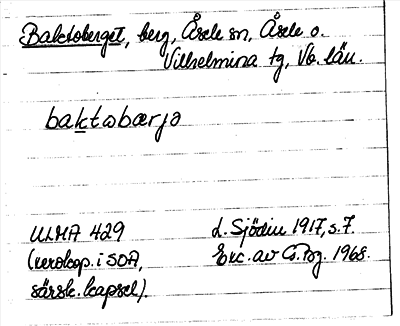 Baktoberget, berg, Åsele sn, Åsele o.
Vilhelmina tg, Vb. län.
baktobærjə
ULMA 429
(xerokop. i SOA,
särsk. kapsel).
L. Sjödin 1917, s. 7.
Exc. av 1968.